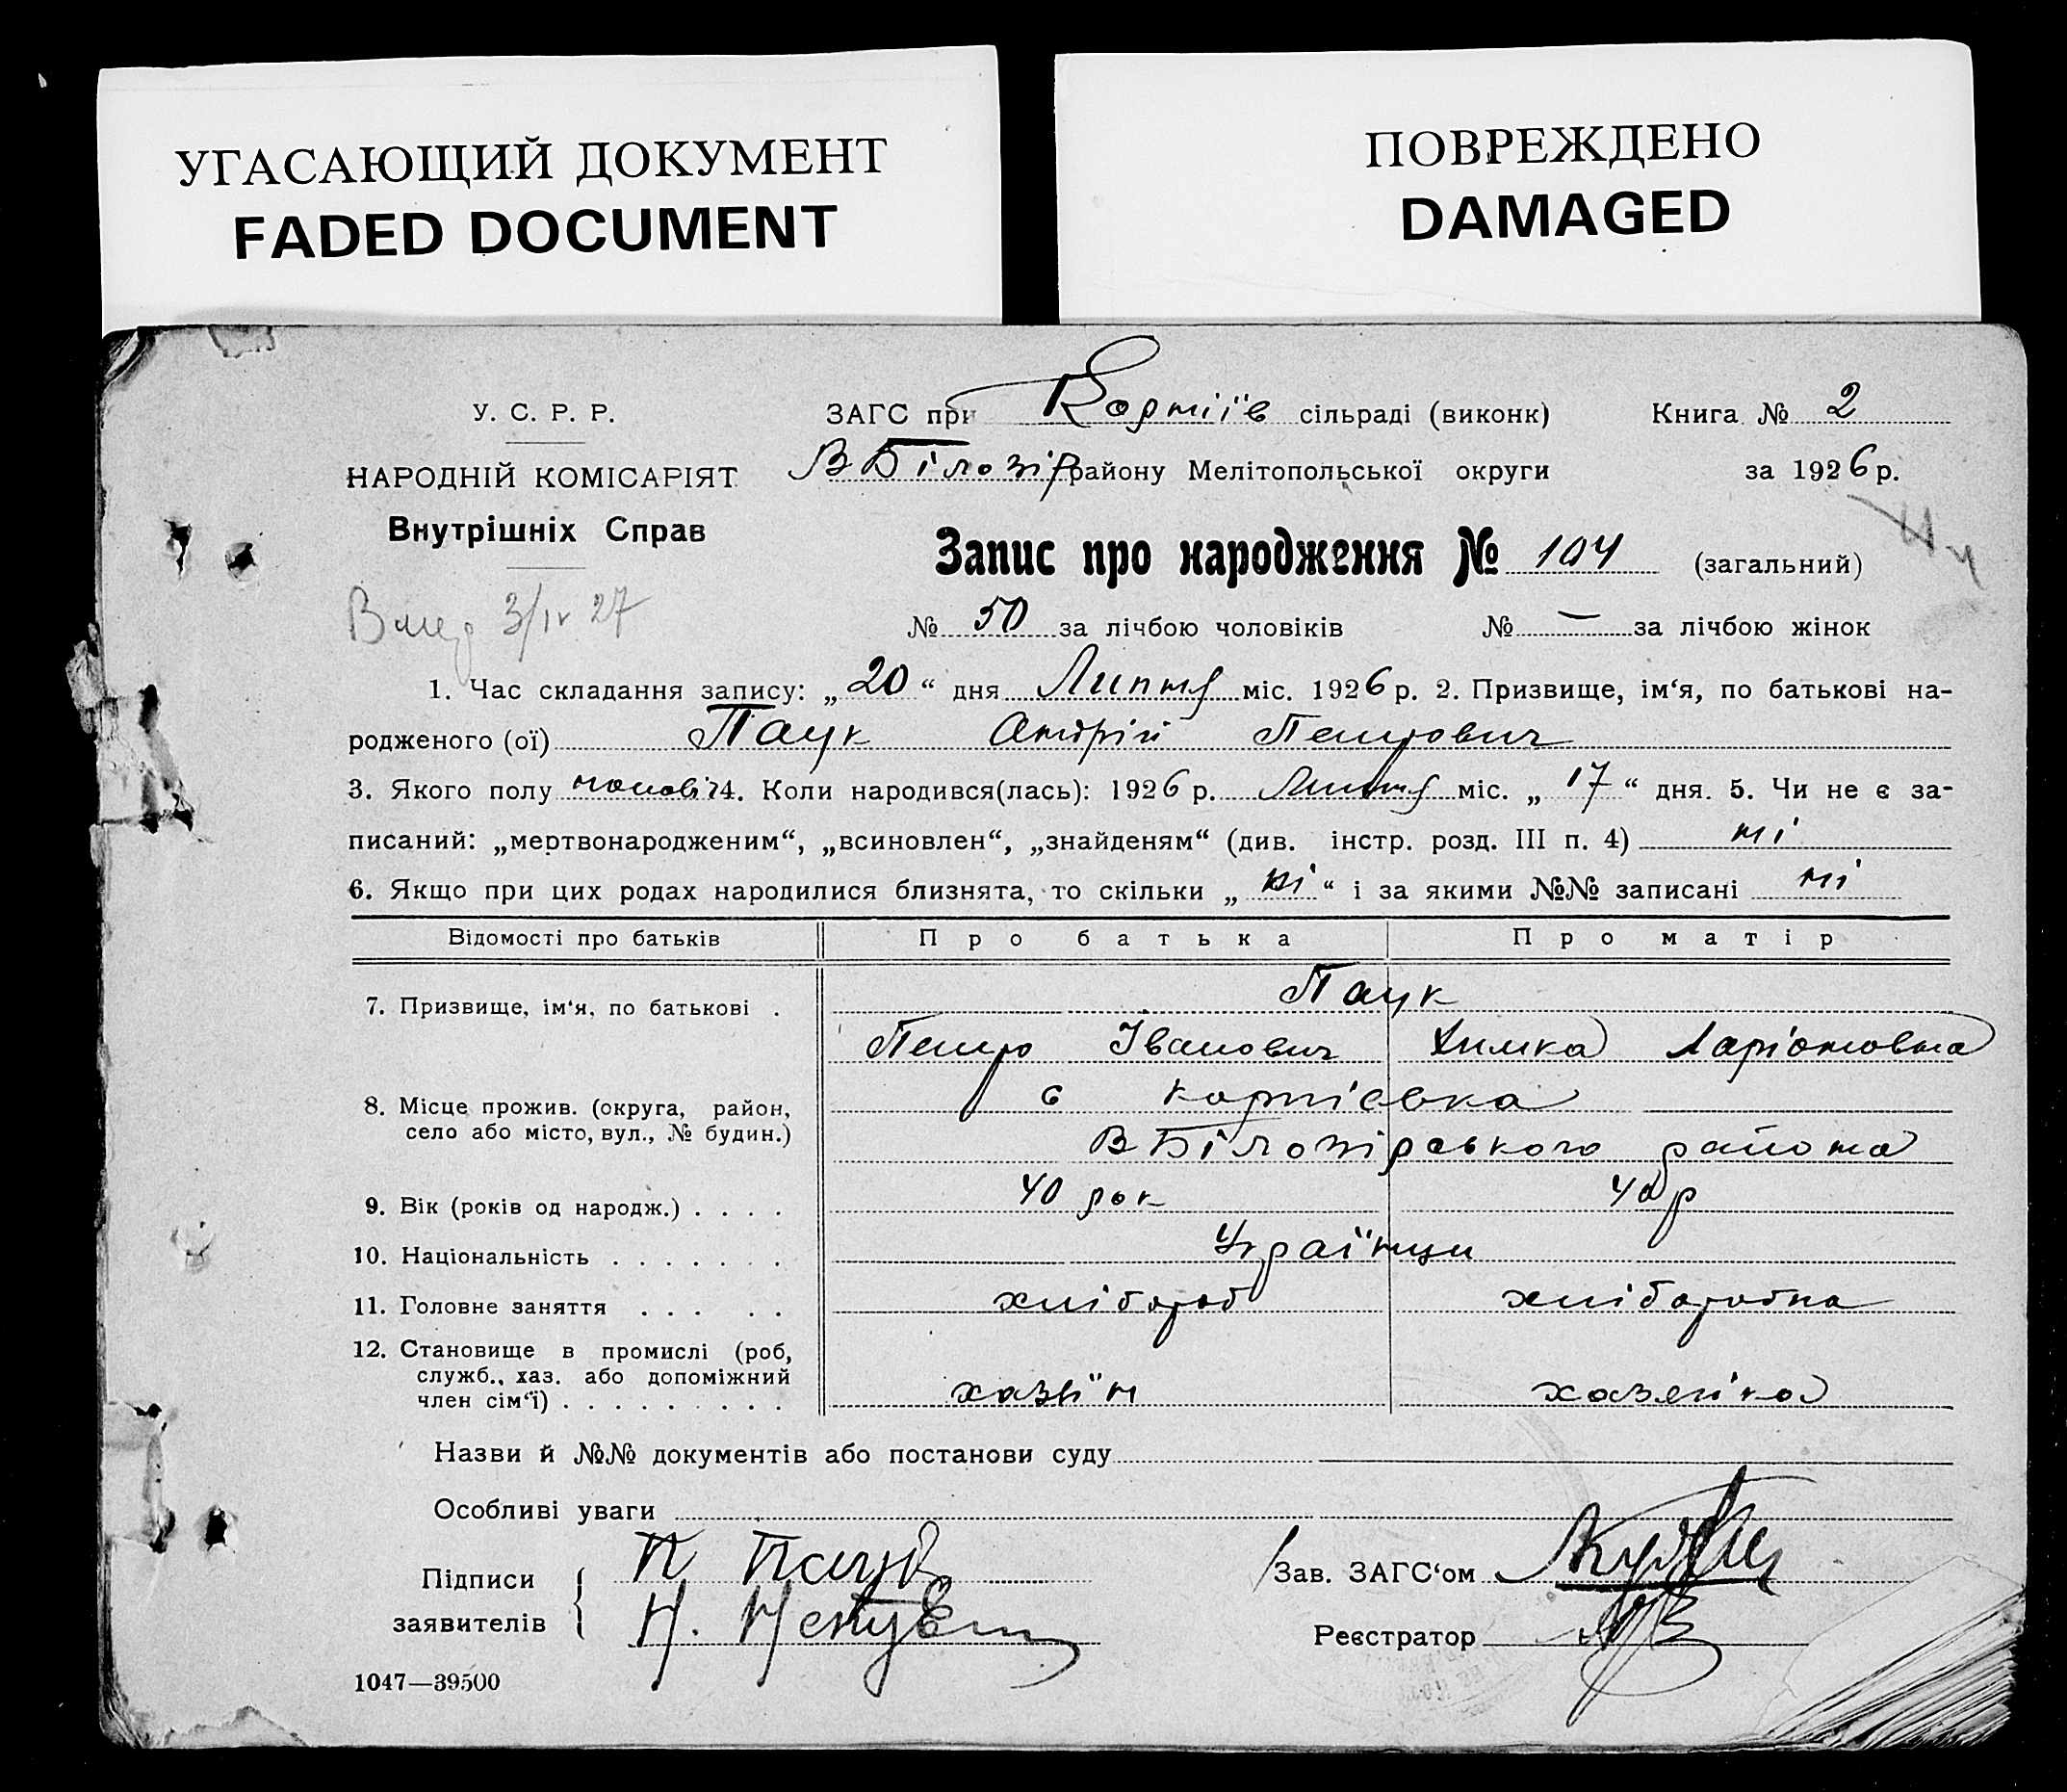 УГАСАЮЩИЙ ДОКУМЕНТ
FADED DOCUMENT
ПОВРЕЖДЕНО
DAMAGED
У. С. Р. Р.
НАРОДНІЙ КОМІСАРІЯТ
Внутрішніх Справ
Вмер 3/IV 27
ЗАГС при Корніїв сільраді (виконк) Книга № 2
В Білозір району Мелітопольської округи за 1926 р.
Запис про народження № 104 (загальний)
№ 50 за лічбою чоловіків № — за лічбою жінок
1. Час складання запису: „20“ дня Липня міс. 1926 р. 2. Призвище, ім‘я, по батькові на-
родженого (ої) Паук Андрій Петрович
3. Якого полу чоловіч 4. Коли народився(лась): 1926 р. Липня міс. „17“ дня. 5. Чи не є за-
писаний: „мертвонародженим“, „всиновлен“, „знайденям“ (див. інстр. розд. III п. 4) ні
6. Якщо при цих родах народилися близнята, то скільки „ні“ і за якими №№ записані ні
Відомості про батьків Про батька Про матір
7. Призвище, ім‘я, по батькові . Паук
Петро Іванович Химка Ларіоновна
8. Місце прожив. (округа, район, с Корнієвка
село або місто, вул., № будин.) В Білозірського района
9. Вік (років од народж.) . . . . 40 рок 40 р
10. Національність . . . . . . . Українци
11. Головне заняття . . . . . хлібороб хліборобка
12. Становище в промислі (роб,
служб., хаз. або допоміжний
член сім‘ї) . . . . . . . . . хазяїн хазяйка
Назви й №№ документів або постанови суду
Особливі уваги
Підписи П Паук Зав. ЗАГС‘ом
заявителів Н. Реєстратор
1047—39500